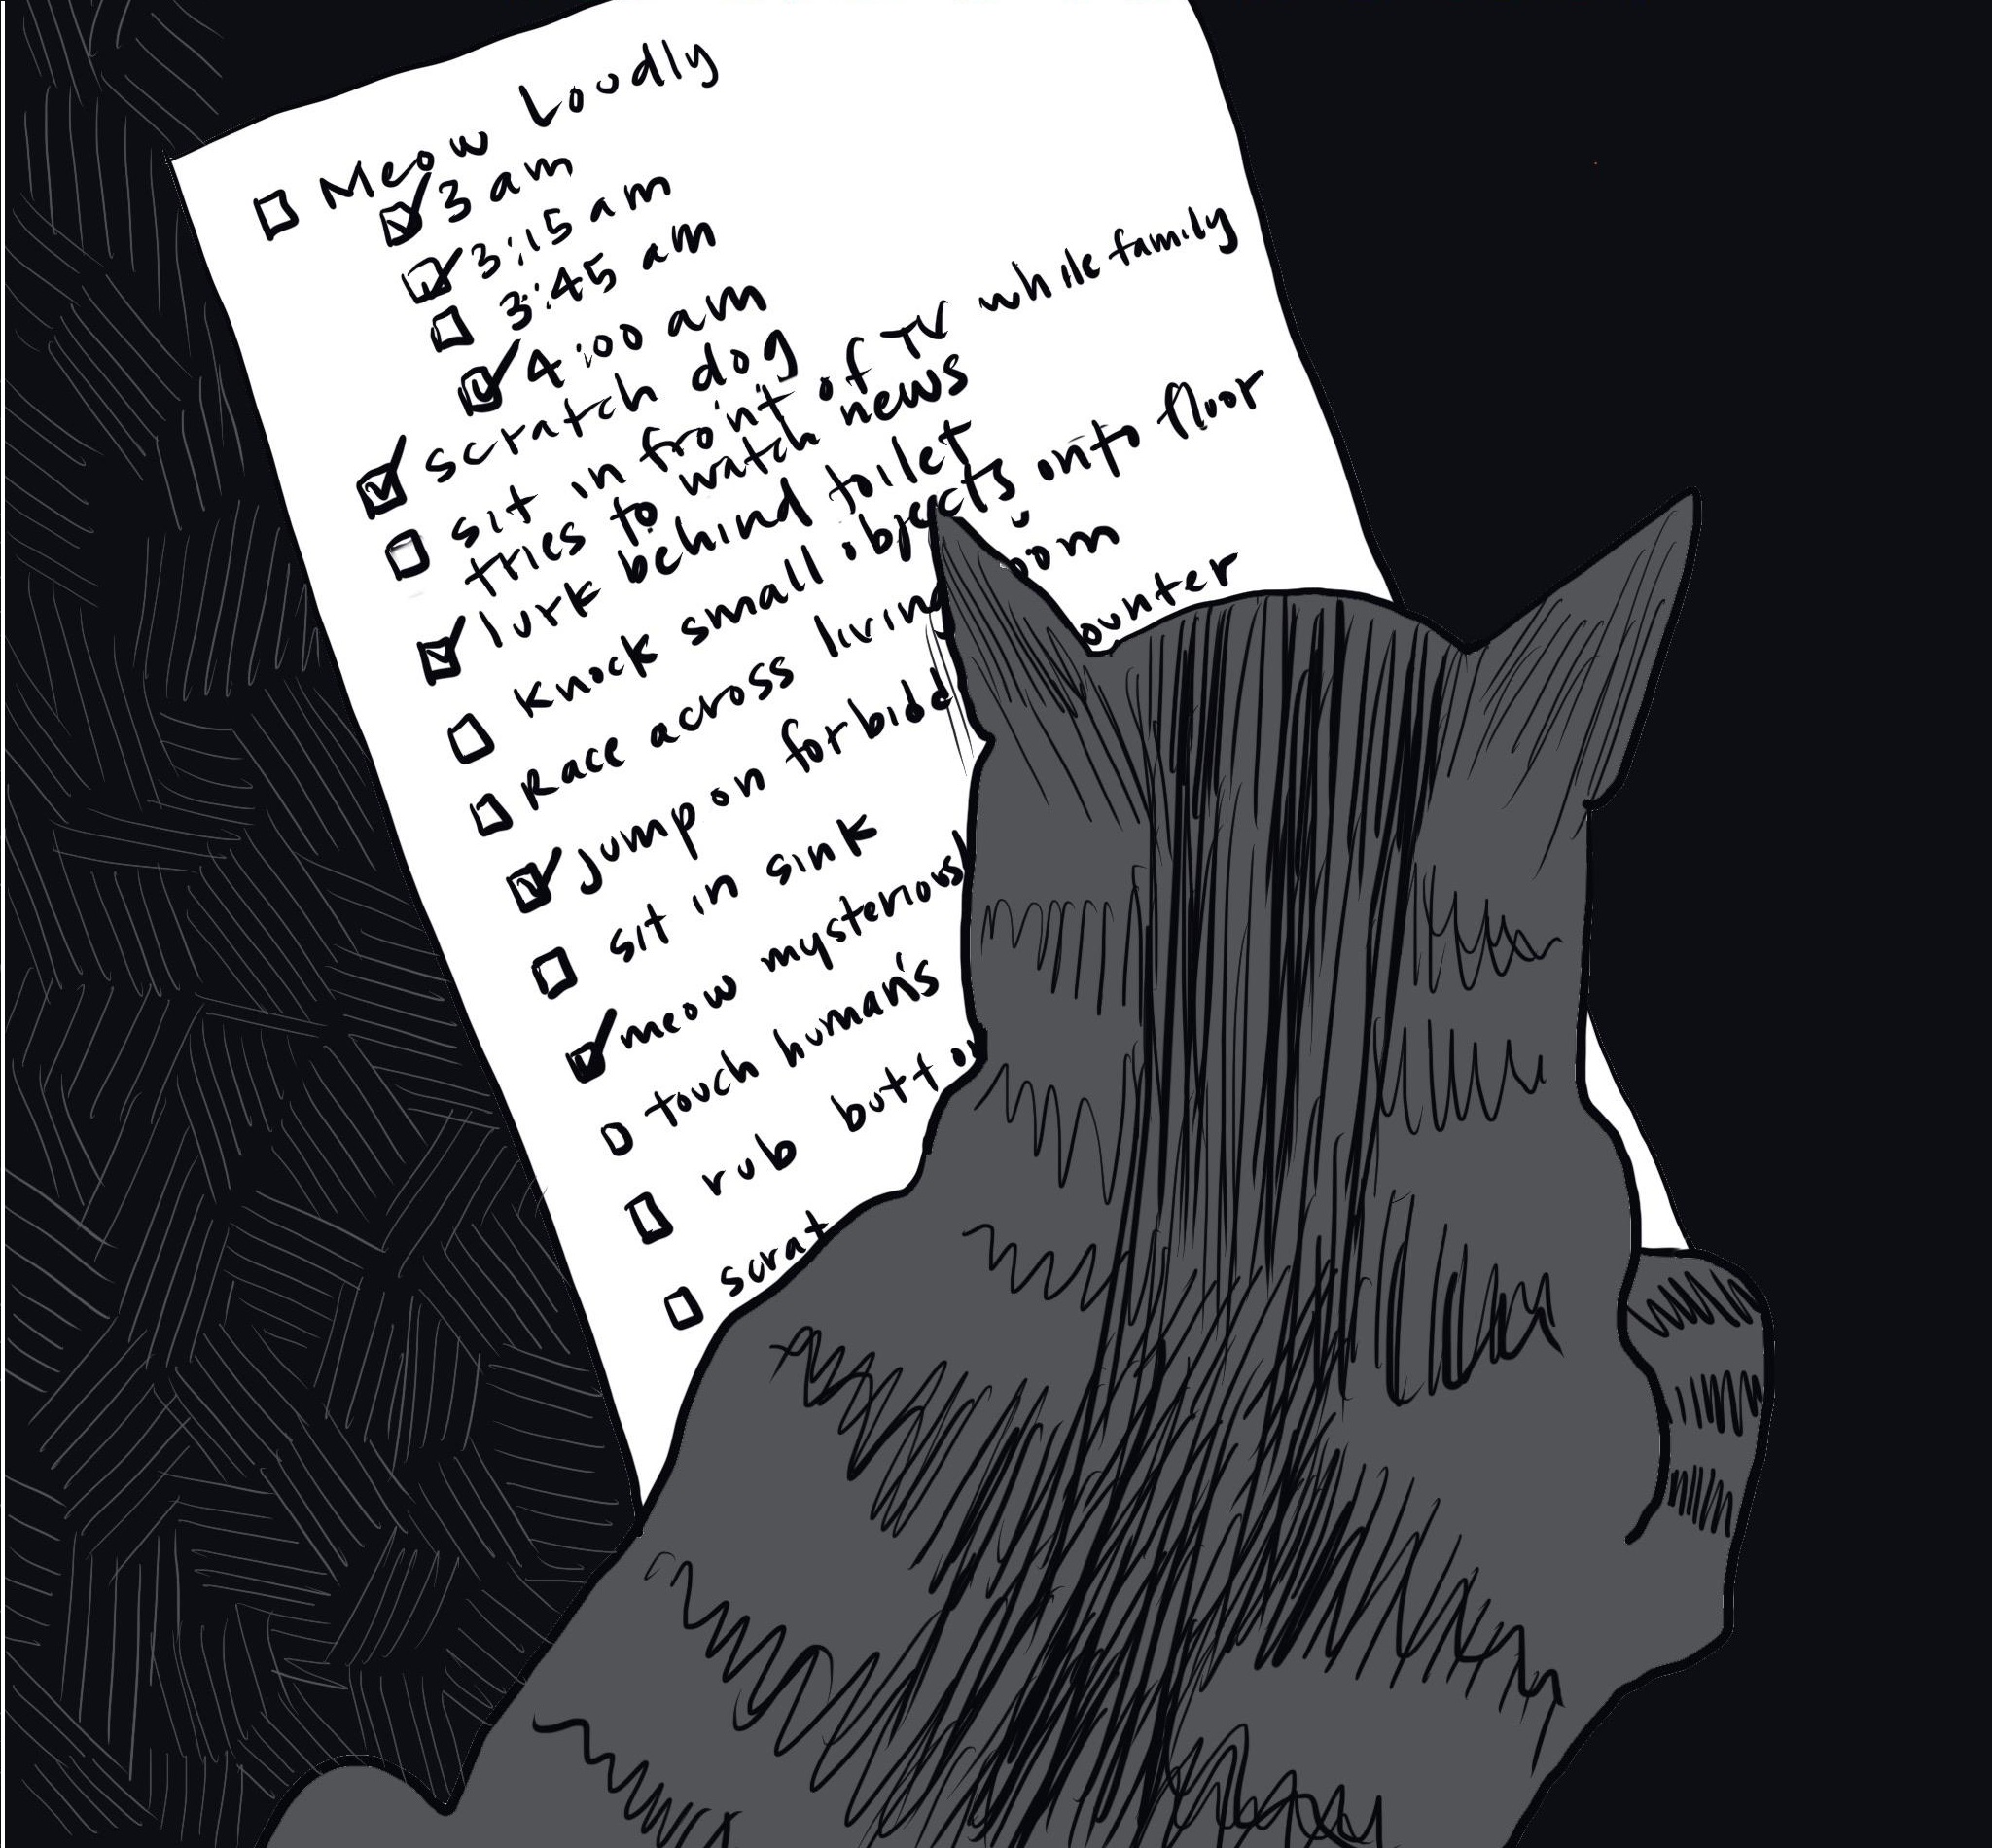 Meow Loudly
3 am
3:15 am
3:45 am
4:00 am
scratch dog
sit in front of TV while family
tries to watch news
lurk behind toilet
Knock small objects onto floor
Race across living oom
Jump on forbidd ounter
sit in sink
meow mysteriousl
touch human's
rub butt on
scrat